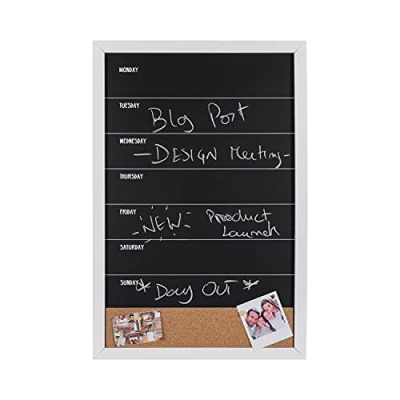 MONDAY
TUESDAY
Blog Post
WEDNESDAY
-DESIGN Meeting-
THURSDAY
FRIDAY
-NEW- Product
Launch
SATURDAY
SUNDAY
* Day OUT *